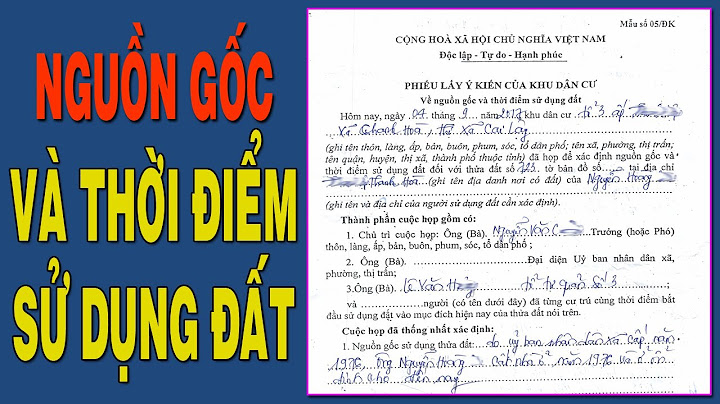 NGUỒN GỐC
VÀ THỜI ĐIỂM
SỬ DỤNG ĐẤT
Mẫu số 05/ĐK
CỘNG HOÀ XÃ HỘI CHỦ NGHĨA VIỆT NAM
Độc lập - Tự do - Hạnh phúc
PHIẾU LẤY Ý KIẾN CỦA KHU DÂN CƯ
Về nguồn gốc và thời điểm sử dụng đất
Hôm nay, ngày 04 tháng 9 năm 2017 khu dân cư tổ 3 ấp
xã Thanh Hoà, Thị Xã Cai Lậy
(ghi tên thôn, làng, ấp, bản, buôn, phum, sóc, tổ dân phố; tên xã, phường, thị trấn;
tên quận, huyện, thị xã, thành phố thuộc tỉnh) đã họp để xác định nguồn gốc và
thời điểm sử dụng đất đối với thửa đất số 723 tờ bản đồ số..... tại địa chỉ
Thanh Hoà (ghi tên địa danh nơi có đất) của Nguyễn Hoàng
(ghi tên và địa chỉ của người sử dụng đất cần xác định).
Thành phần cuộc họp gồm có:
1. Chủ trì cuộc họp: Ông (Bà). Nguyễn Văn Trưởng (hoặc Phó)
thôn, làng, ấp, bản, buôn, phum, sóc, tổ dân phố ;
2. Ông (Bà). Đại diện Uỷ ban nhân dân xã,
phường, thị trấn;
3.Ông (Bà). Lê Văn tổ tự quản số 3
và ............người (có tên dưới đây) đã từng cư trú cùng thời điểm bắt
đầu sử dụng đất vào mục đích hiện nay của thửa đất nói trên.
Cuộc họp đã thống nhất xác định:
1. Nguồn gốc sử dụng thửa đất: do uỷ ban nhân dân xã cấp năm
1976, ông Nguyễn Hoàng cất nhà ở năm 1976 và ở ổn
định cho đến nay